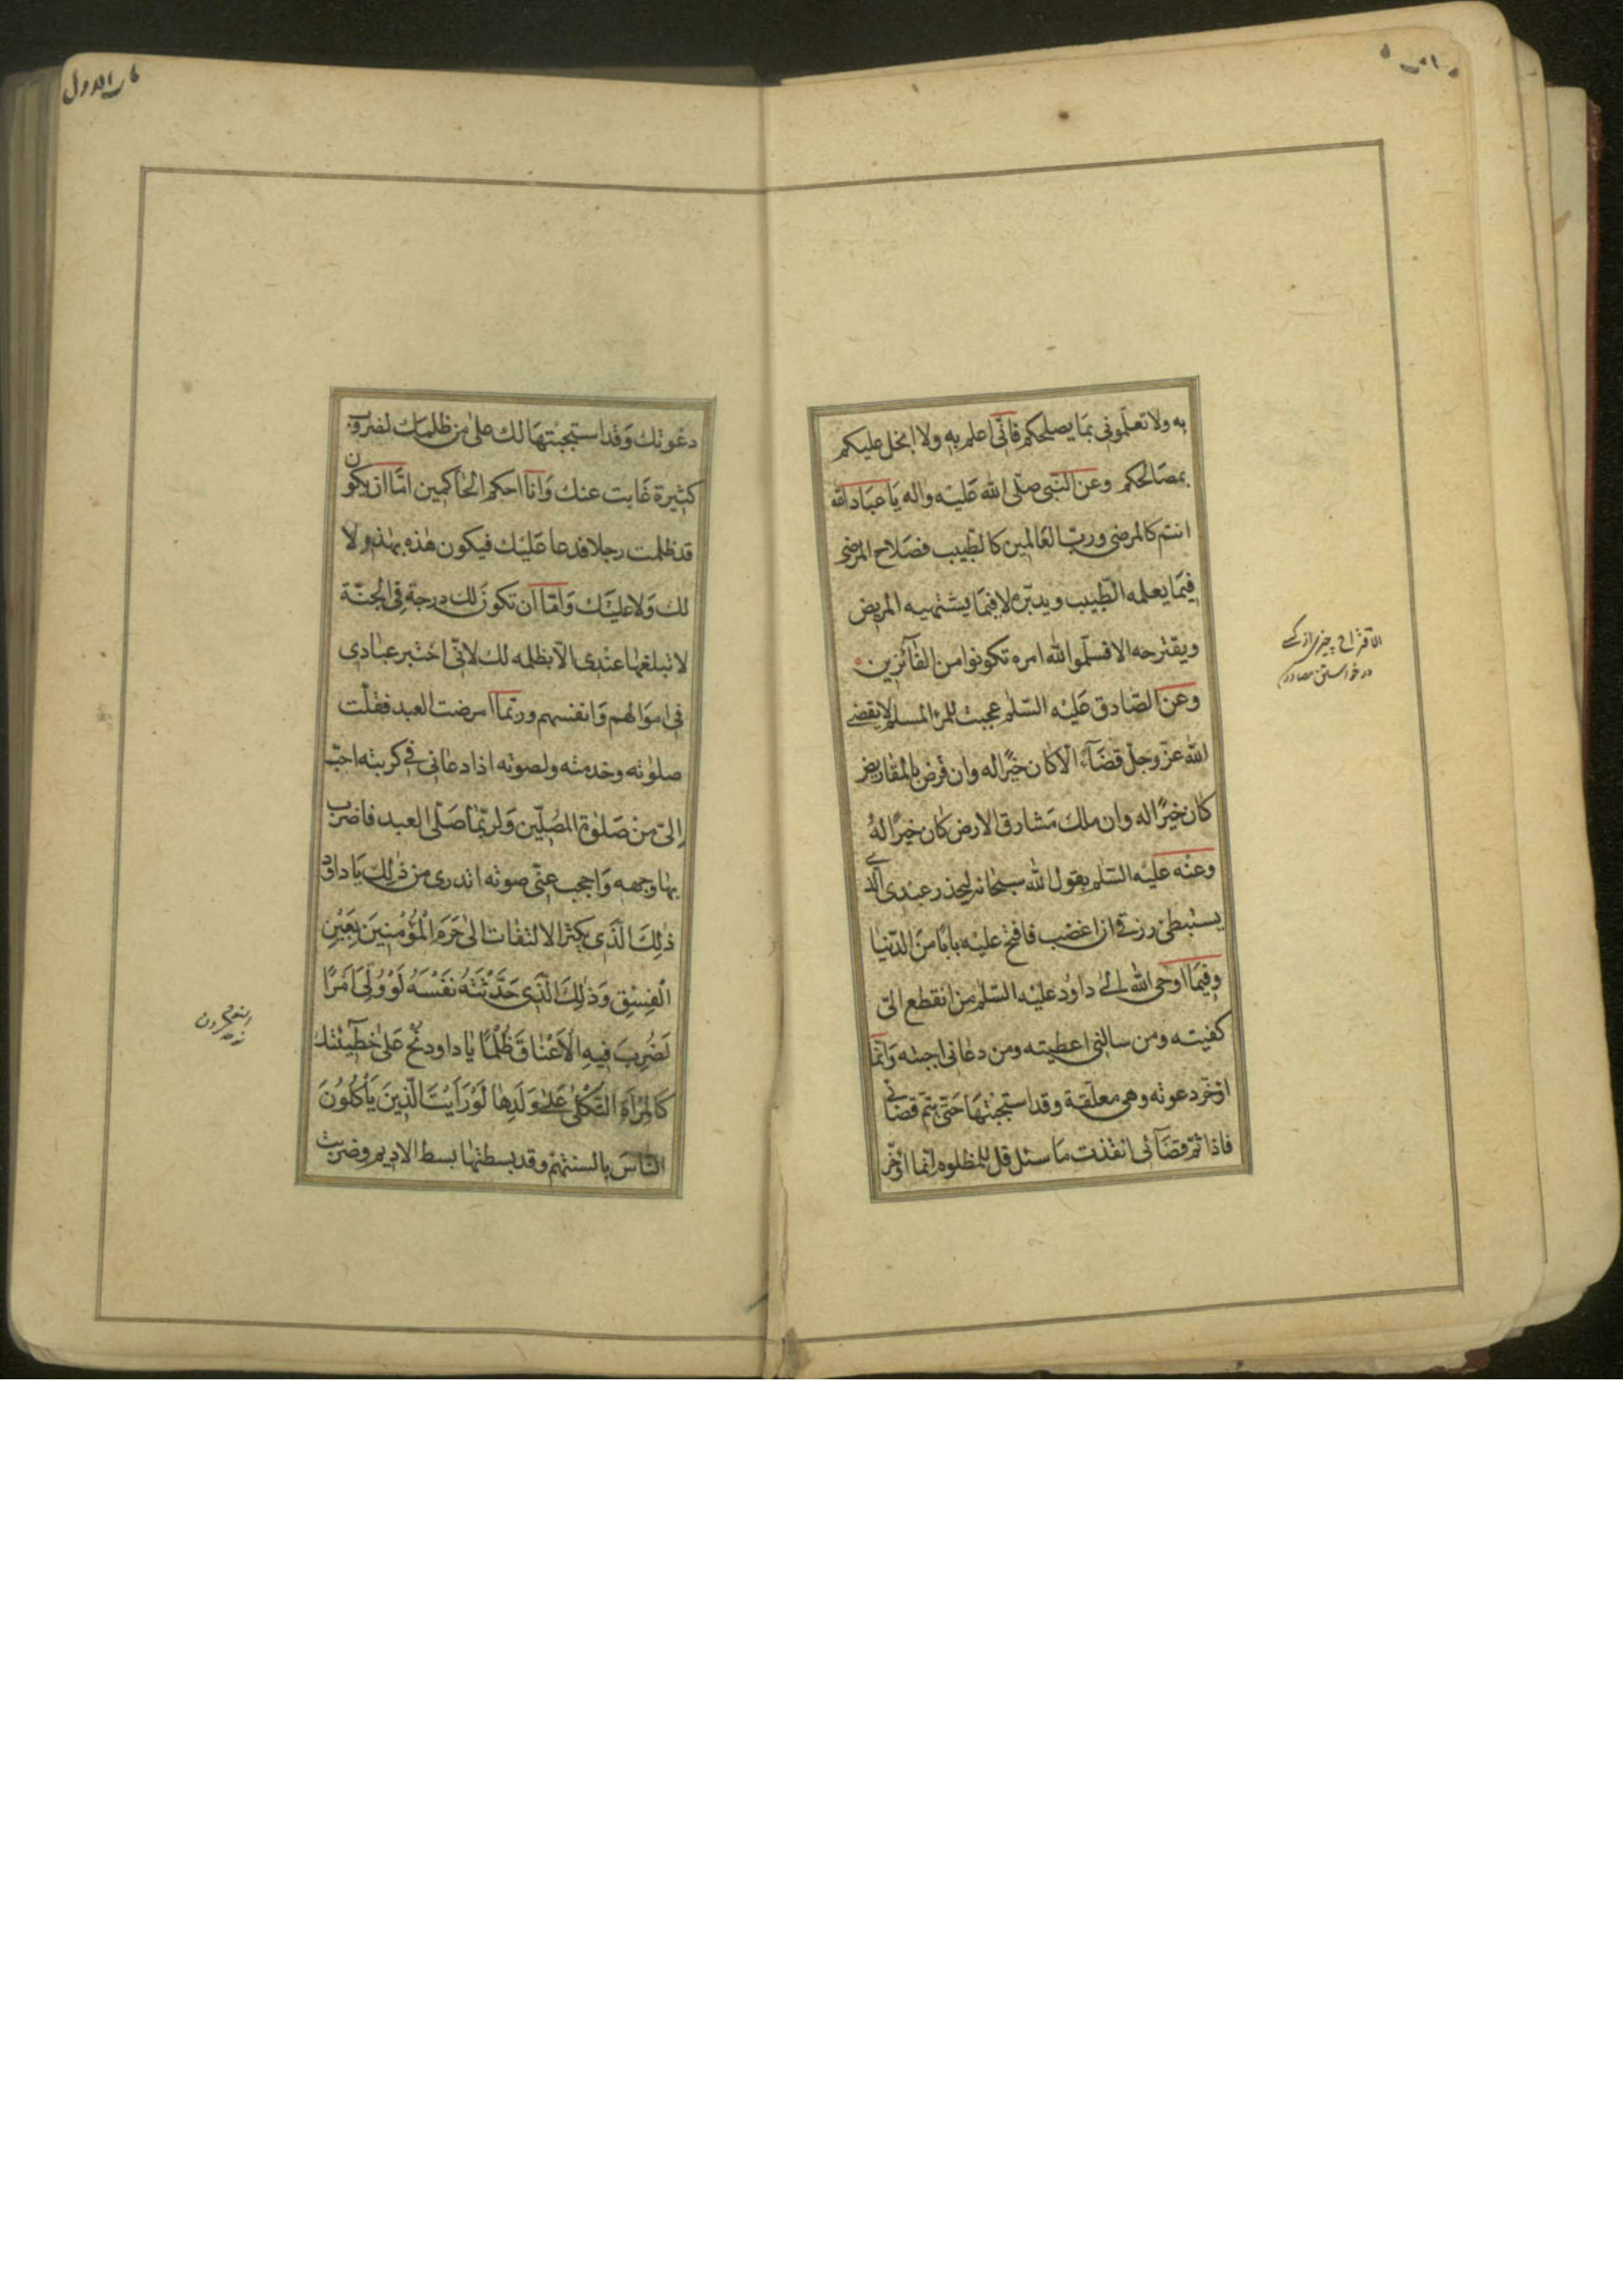 به ولا تعلّمونى بما يصلحكم فانّى اعلم به ولا ابخل عليكم
بمصالحكم وعن النّبى صلّى الله عليه واله يا عباد الله
انتم كالمرضى وربّ العالمين كالطّبيب فصلاح المرضى
فيما يعلمه الطّبيب ويدبّره لا فيما يشتهيه المريض
ويقترحه الا فسلّموا لله امره تكونوا من الفآئزين
وعن الصّادق عليه السّلم عجبت للمرء المسلم لا يقضى
الله عزّ وجلّ قضآءً الّا كان خيرًا له وان قرض بالمقاريض
كان خيرًا له وان ملك مشارق الارض كان خيرًا له
وعنه عليه السّلم يقول الله سبحانه ليحذر عبدى الّذى
يستبطئ رزقى ان اغضب فافتح عليه بابًا من الدّنيا
وفيما اوحى الله الى داود عليه السّلم من انقطع الىّ
كفيته ومن سالنى اعطيته ومن دعانى اجبته وانّما
اؤخّر دعوته وهى معلّقة وقد استجبتها حتّى يتمّ قضائى
فاذا تمّ قضآئى انفذت ما سئل قل للمظلوم انّما اؤخّر
الاقتراح چيزى از كسى
در خواستن مصادر
دعوتك وقد استجبتها لك على من ظلمك لضروب
كثيرة غابت عنك وانا احكم الحاكمين امّا ان يكون
قد ظلمت رجلا فدعا عليك فيكون هذه بهذه ولا
لك ولا عليك وامّا ان تكون لك درجة فى الجنّة
لا تبلغها عندى الّا بظلمه لك لانّى اختبر عبادى
فى اموالهم وانفسهم وربّما امرضت العبد فقلّت
صلوته وخدمته ولصوته اذا دعانى فى كربته احبّ
الىّ من صلوة المصلّين ولربّما صلّى العبد فاضرب
بها وجهه واحجب عنّى صوته اتدرى من ذلك يا داود
ذٰلِكَ الَّذى يكثر الالتفات الى حَرَمِ الْمُؤْمِنِينَ بِعَيْنِ
الْفِسْقِ وَذٰلِكَ الَّذى حَدَّثَتْهُ نَفْسَهُ لَوْ وُلِّىَ اَمْرًا
لَضُرِبَ فِيهِ الْاَعْنَاقَ ظُلْمًا يا داود نُحْ عَلى خَطِيئَتِكَ
كَالمَرْأَةِ الثَّكْلى عَلى وَلَدِها لَوْ رَاَيْتَ الَّذِينَ يَأْكُلُونَ
النَّاسَ بالسنتهم وقد بسطتها بسط الاديم وضربت